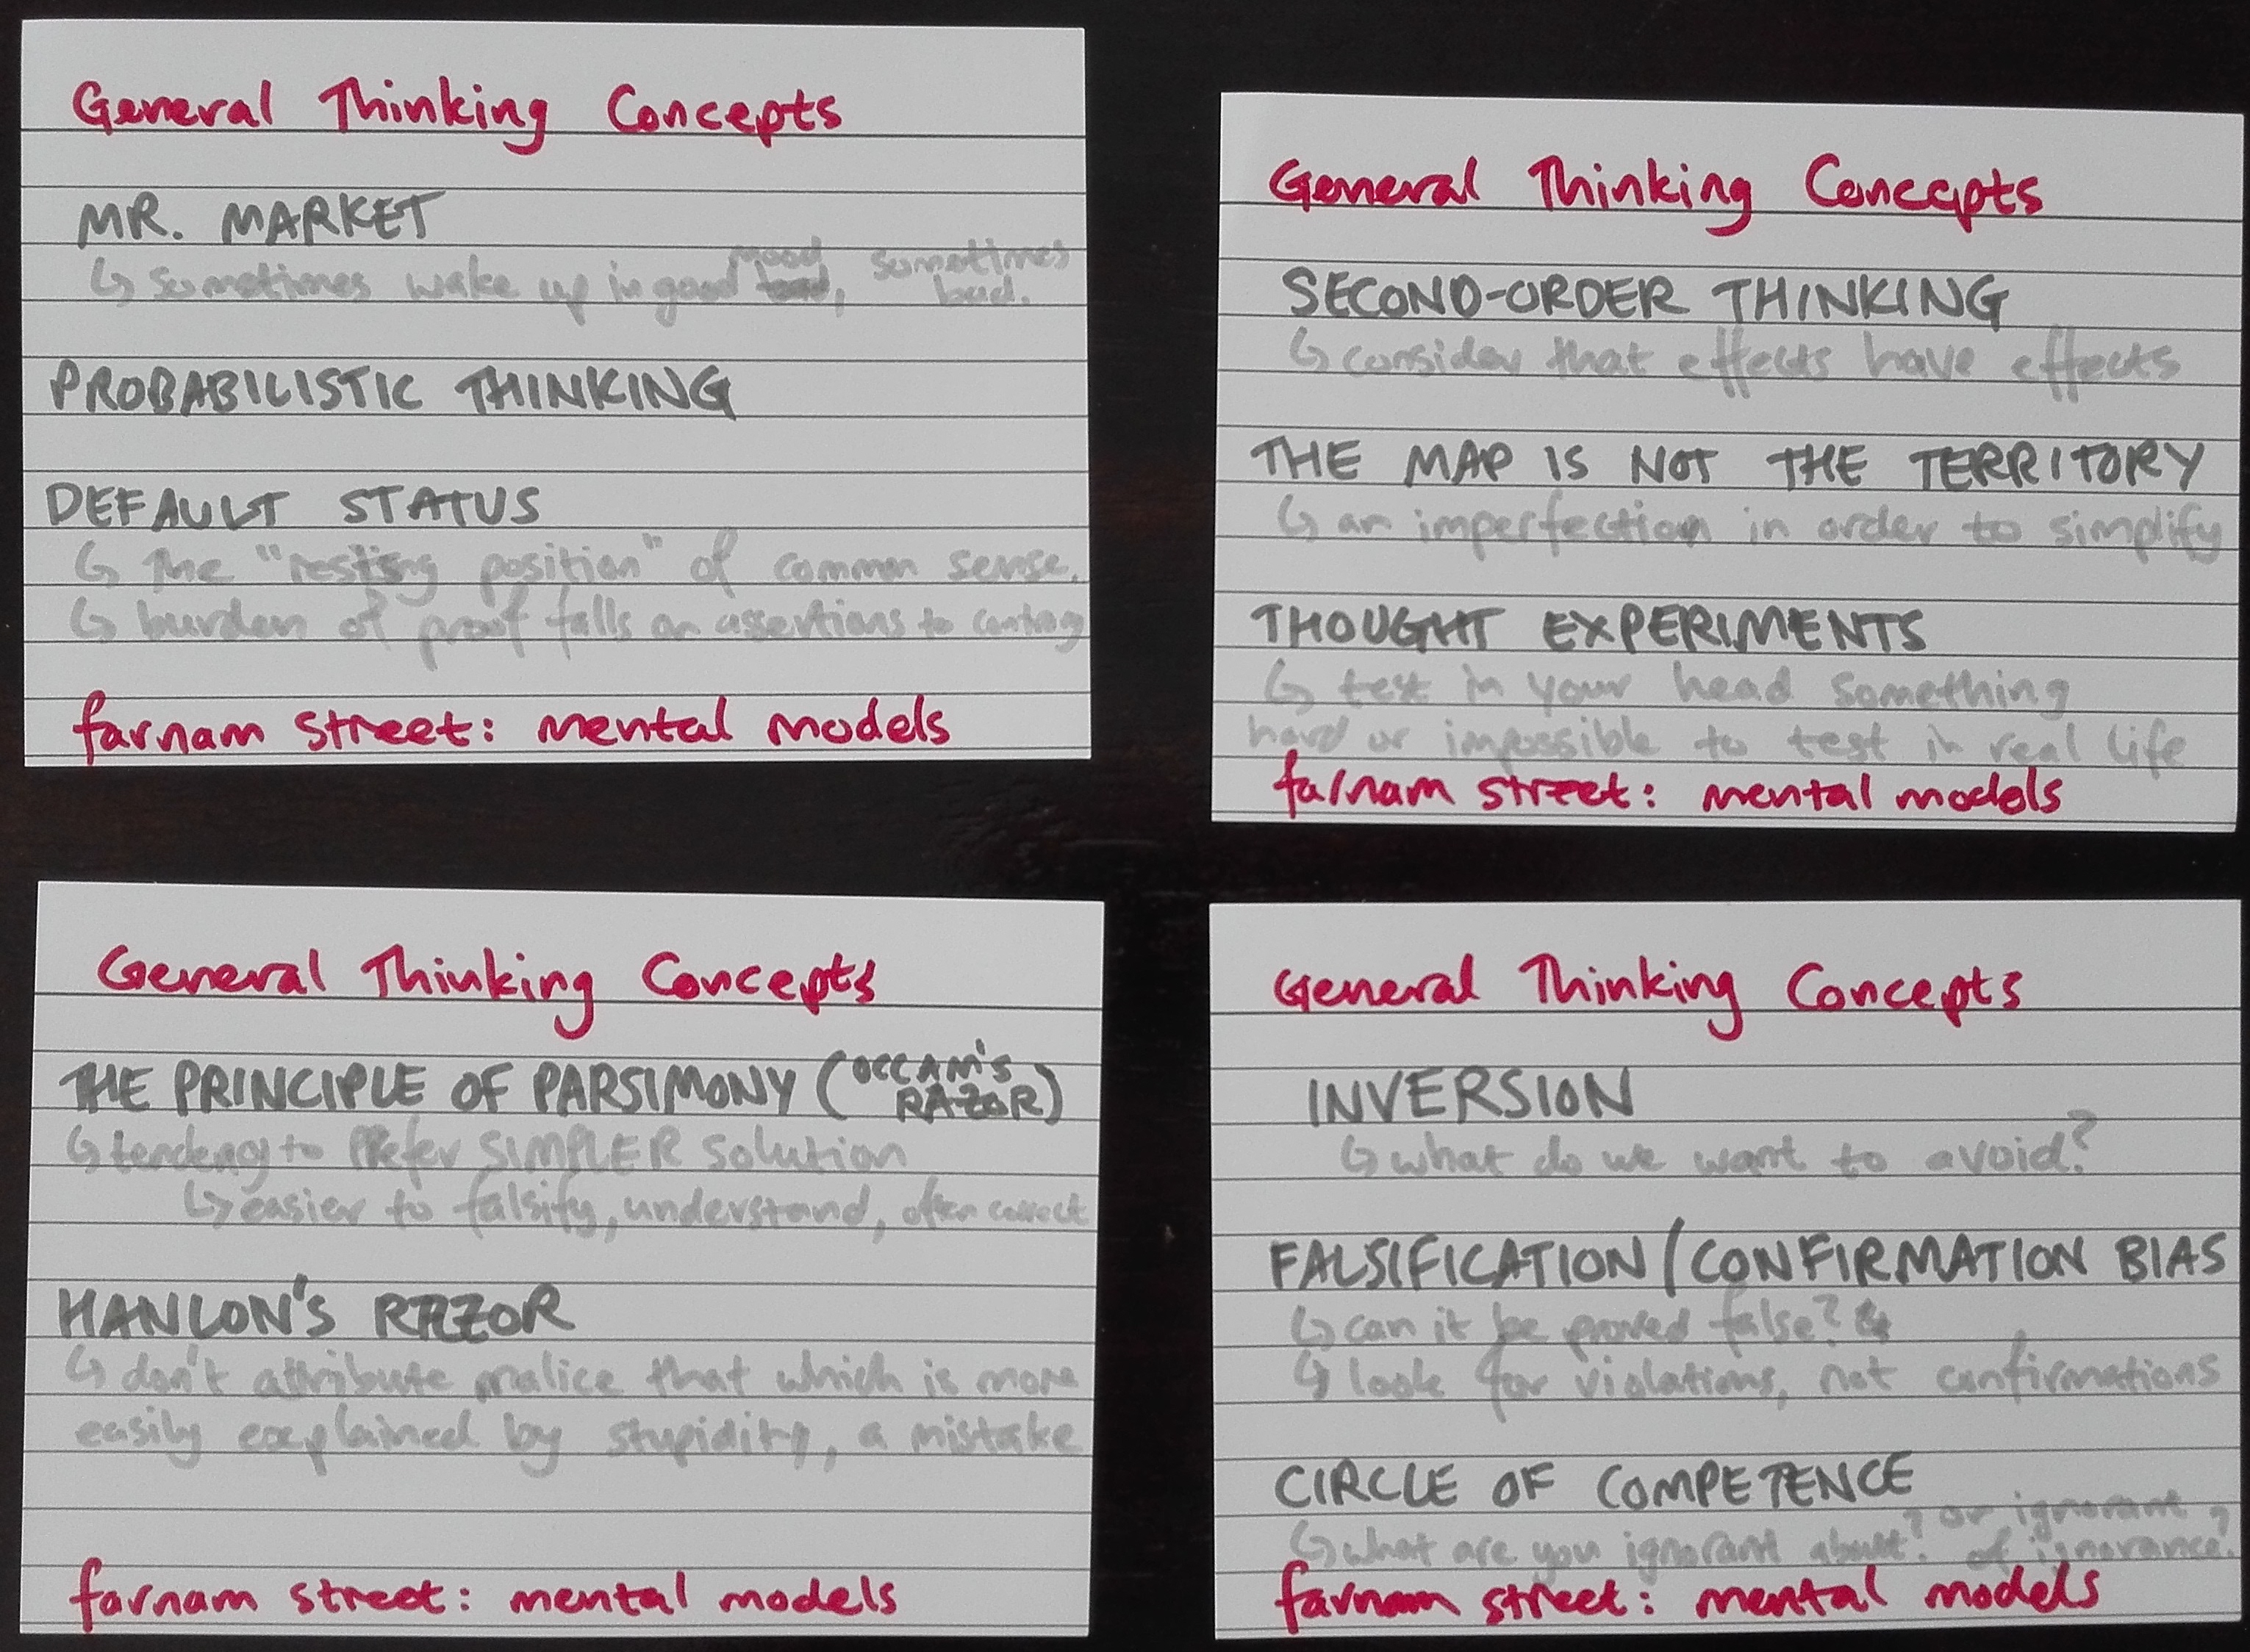 General Thinking Concepts
MR. MARKET
↳ sometimes wake up in good mood, sometimes bad.
PROBABILISTIC THINKING
DEFAULT STATUS
↳ the "resting position" of common sense.
↳ burden of proof falls on assertions to contrary
farnam street: mental models
General Thinking Concepts
SECOND-ORDER THINKING
↳ consider that effects have effects
THE MAP IS NOT THE TERRITORY
↳ an imperfection in order to simplify
THOUGHT EXPERIMENTS
↳ test in your head something
hard or impossible to test in real life
farnam street: mental models
General Thinking Concepts
THE PRINCIPLE OF PARSIMONY (OCCAM'S RAZOR)
↳ tendency to prefer SIMPLER solution
↳ easier to falsify, understand, often correct
HANLON'S RAZOR
↳ don't attribute malice that which is more
easily explained by stupidity, a mistake
farnam street: mental models
General Thinking Concepts
INVERSION
↳ what do we want to avoid?
FALSIFICATION/CONFIRMATION BIAS
↳ can it be proved false?
↳ look for violations, not confirmations
CIRCLE OF COMPETENCE
↳ what are you ignorant about? or ignorant of ignorance?
farnam street: mental models